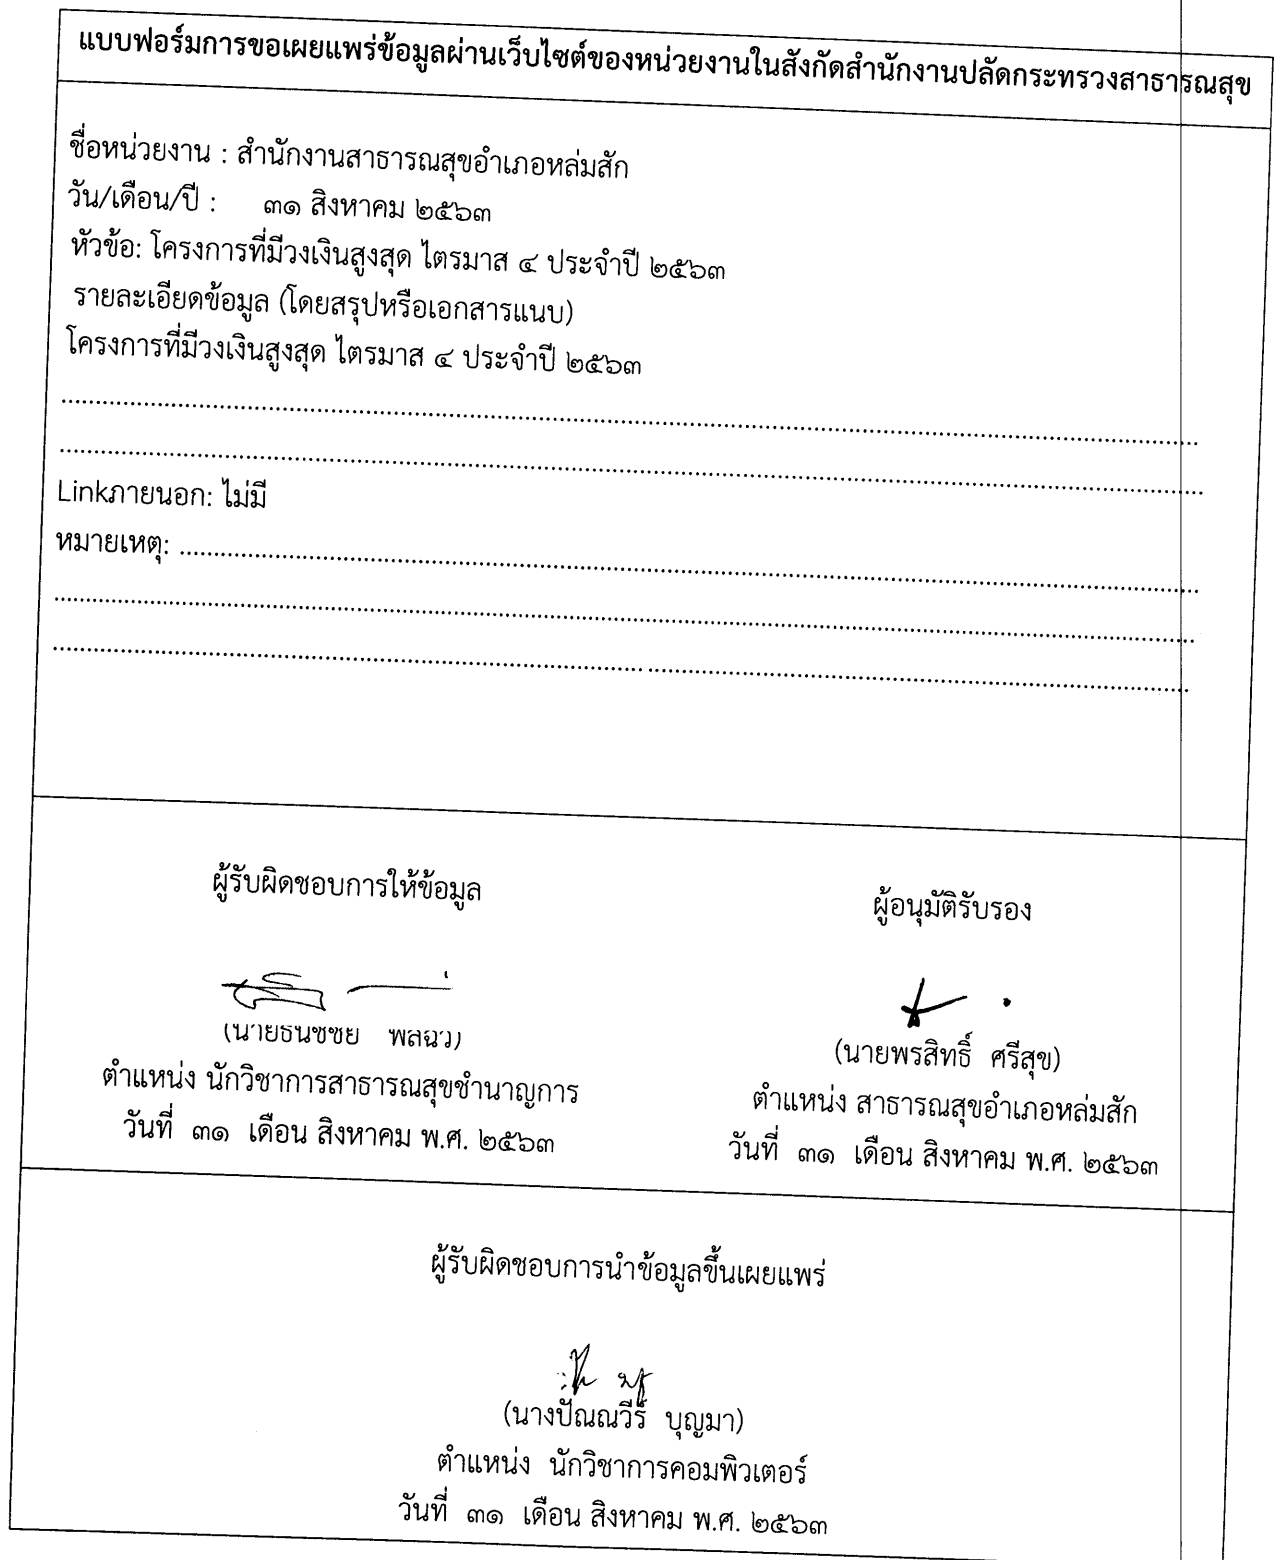 แบบฟอร์มการขอเผยแพร่ข้อมูลผ่านเว็บไซต์ของหน่วยงานในสังกัดสำนักงานปลัดกระทรวงสาธารณสุข
ชื่อหน่วยงาน : สำนักงานสาธารณสุขอำเภอหล่มสัก
วัน/เดือน/ปี : ๓๑ สิงหาคม ๒๕๖๓
หัวข้อ: โครงการที่มีวงเงินสูงสุด ไตรมาส ๔ ประจำปี ๒๕๖๓
รายละเอียดข้อมูล (โดยสรุปหรือเอกสารแนบ)
โครงการที่มีวงเงินสูงสุด ไตรมาส ๔ ประจำปี ๒๕๖๓
Linkภายนอก: ไม่มี
หมายเหตุ:
ผู้รับผิดชอบการให้ข้อมูล
(นายธนชชย
ตำแหน่ง นักวิชาการสาธารณสุขชำนาญการ
วันที่ ๓๑ เดือน สิงหาคม พ.ศ. ๒๕๖๓
ผู้อนุมัติรับรอง
(นายพรสิทธิ์ ศรีสุข)
ตำแหน่ง สาธารณสุขอำเภอหล่มสัก
วันที่ ๓๑ เดือน สิงหาคม พ.ศ. ๒๕๖๓
ผู้รับผิดชอบการนำข้อมูลขึ้นเผยแพร่
(นางปัณณวีร์ บุญมา)
ตำแหน่ง นักวิชาการคอมพิวเตอร์
วันที่ ๓๑ เดือน สิงหาคม พ.ศ. ๒๕๖๓